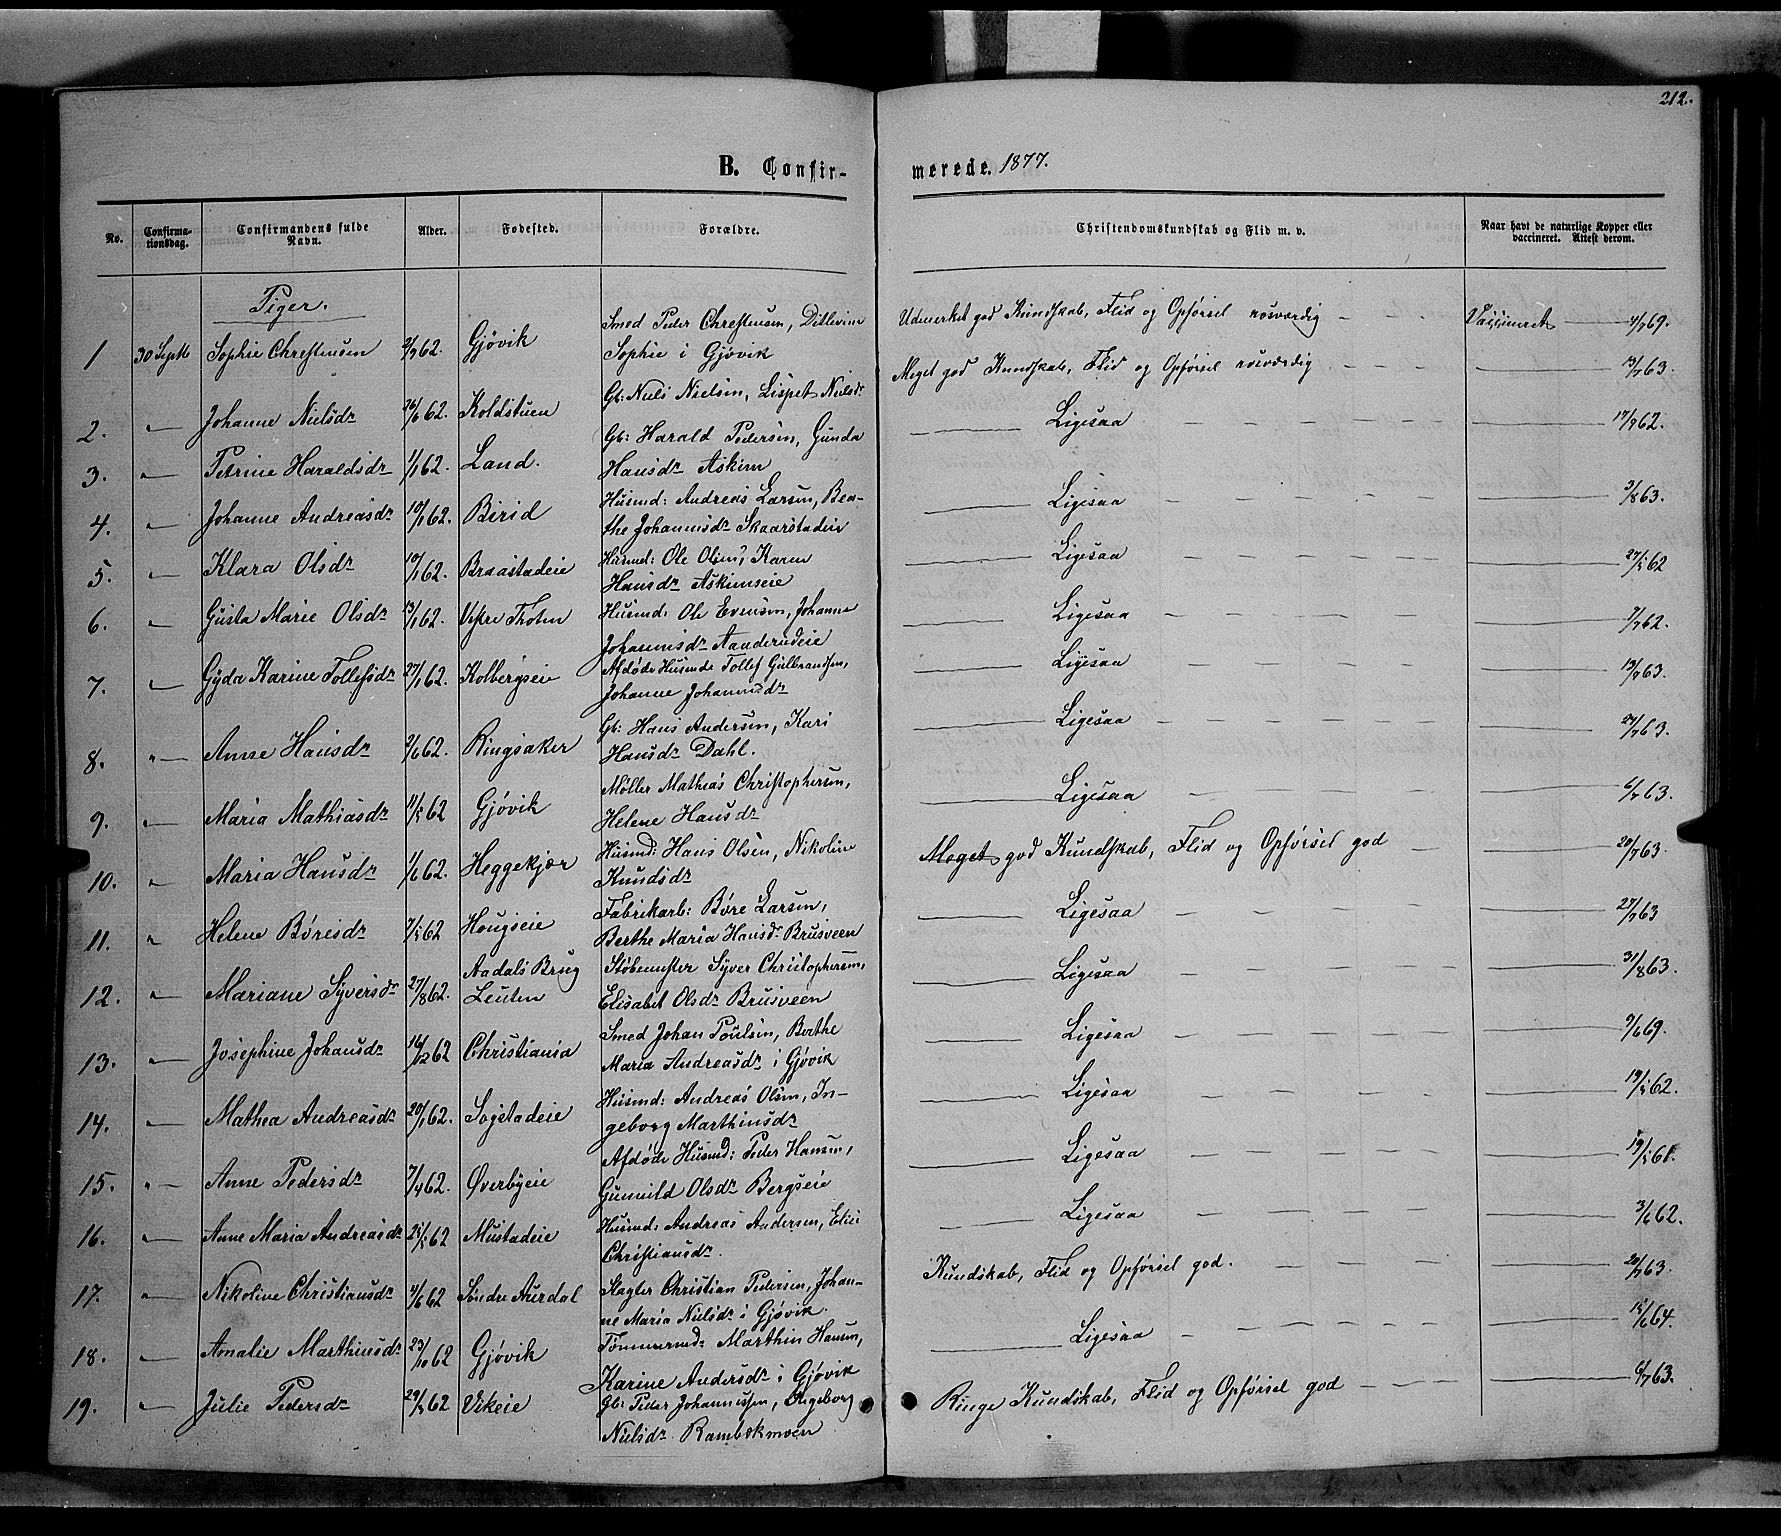 212.
B. Confirmerede. 1877.
No. Confirmationsdag. Confirmandens fulde Navn. Alder. Fødested. Forældre. Christendomskundskab og Flid m. v. Naar havt de naturlige Kopper eller vaccineret. Attest derom.
Piger.
1 30 Septb Sophie Christensen 62. Gjøvik Smed Peder Christensen, Ditlevine
Sophie i Gjøvik Udmerket god Kundskab, Flid og Opførsel rosværdig Vaccineret 4/7 69.
2. Johanne Nielsdr 26/6 62. Koldstuen Gb: Niels Nielsen, Lispet Nielsdr Meget god Kundskab, Flid og Opførsel rosværdig 13/7 63.
3. Petrine Haraldsdr 1/1 62. Land. Gb: Harald Pedersen, Gunda
Hansdr Askim Ligesaa 17/7 62.
4. Johanne Andreasdr 10/1 62. Birid Husmd: Andreas Larsen, Bea-
the Johannesdr Skaarstadeie Ligesaa 3/8 63.
5. Klara Olsdr 10/1 62. Braastadeie Husmd: Ole Olsen, Karen
Hansdr Askimseie Ligesaa 62
6. Gusta Marie Olsdr 13/1 62. Vestre Thoten Husmd: Ole Evensen, Johanne
Johannesdr Aanderudeie Ligesaa 1/7 62.
7. Gyda Karine Tollefsdr 27/1 62. Kolbergseie Afdøde Husmd: Tollef Gulbrandsen,
Johanne Johannesdr Ligesaa 13/7 63.
8. Anne Hansdr 2/6 62. Ringsaker Gb: Hans Andersen, Kari
Hansdr Dahl. Ligesaa 63.
9. Maria Mathiasdr 62 Gjøvik Møller Mathias Christophersen,
Helene Hansdr Ligesaa 6/7 63.
10. Maria Hansdr 1/6 62. Heggekjær Husmd: Hans Olsen, Nikoline
Knudsdr Meget god Kundskab, Flid og Opførsel god 20/7 63.
11. Helene Børesdr 62 Hougseie Fabrikarb: Børe Larsen,
Berthe Maria Hansdr Brusveen Ligesaa 27/7 63
12. Mariane Syversdr 27/8 62. Aadals Brug
Leuten Støbemester Syver Christophersen,
Elisabet Olsdr Brusveen Ligesaa 31/8 63.
13. Josephine Johansdr 16/12 62 Christiania Smed Johan Poulsen, Berthe
Maria Andreasdr i Gjøvik Ligesaa 69.
14. Mathea Andreasdr 20/1 62. Sogstadeie Husmd: Andreas Olsen, In-
geborg Marthinsdr Ligesaa 62.
15. Anne Pedersdr 7/4 62. Øverbyeie Afdøde Husmd: Peder Hansen,
Gunnild Olsdr Bergseie Ligesaa 61.
16. Anne Maria Andreasdr 62 Mustadeie Husmd: Andreas Andersen, Elise
Christiansdr. Ligesaa 3/6 62.
17. Nikoline Christiansdr 4/6 62 Søndre Aurdal Slagter Christian Pedersen, Johan-
ne Maria Nielsdr i Gjøvik. Kundskab, Flid og Opførsel god. 20/7 63.
18. Amalie Marthinsdr 23/10 62 Gjøvik Tømmermd: Marthin Hansen,
Karine Andersdr i Gjøvik Ligesaa 64.
19. Julie Pedersdr 62 Vikeie Gb: Peder Johannessen, Ingeborg
Nielsdr Rambekmoen Ringe Kundskab, Flid og Opførsel god 6/7 63.